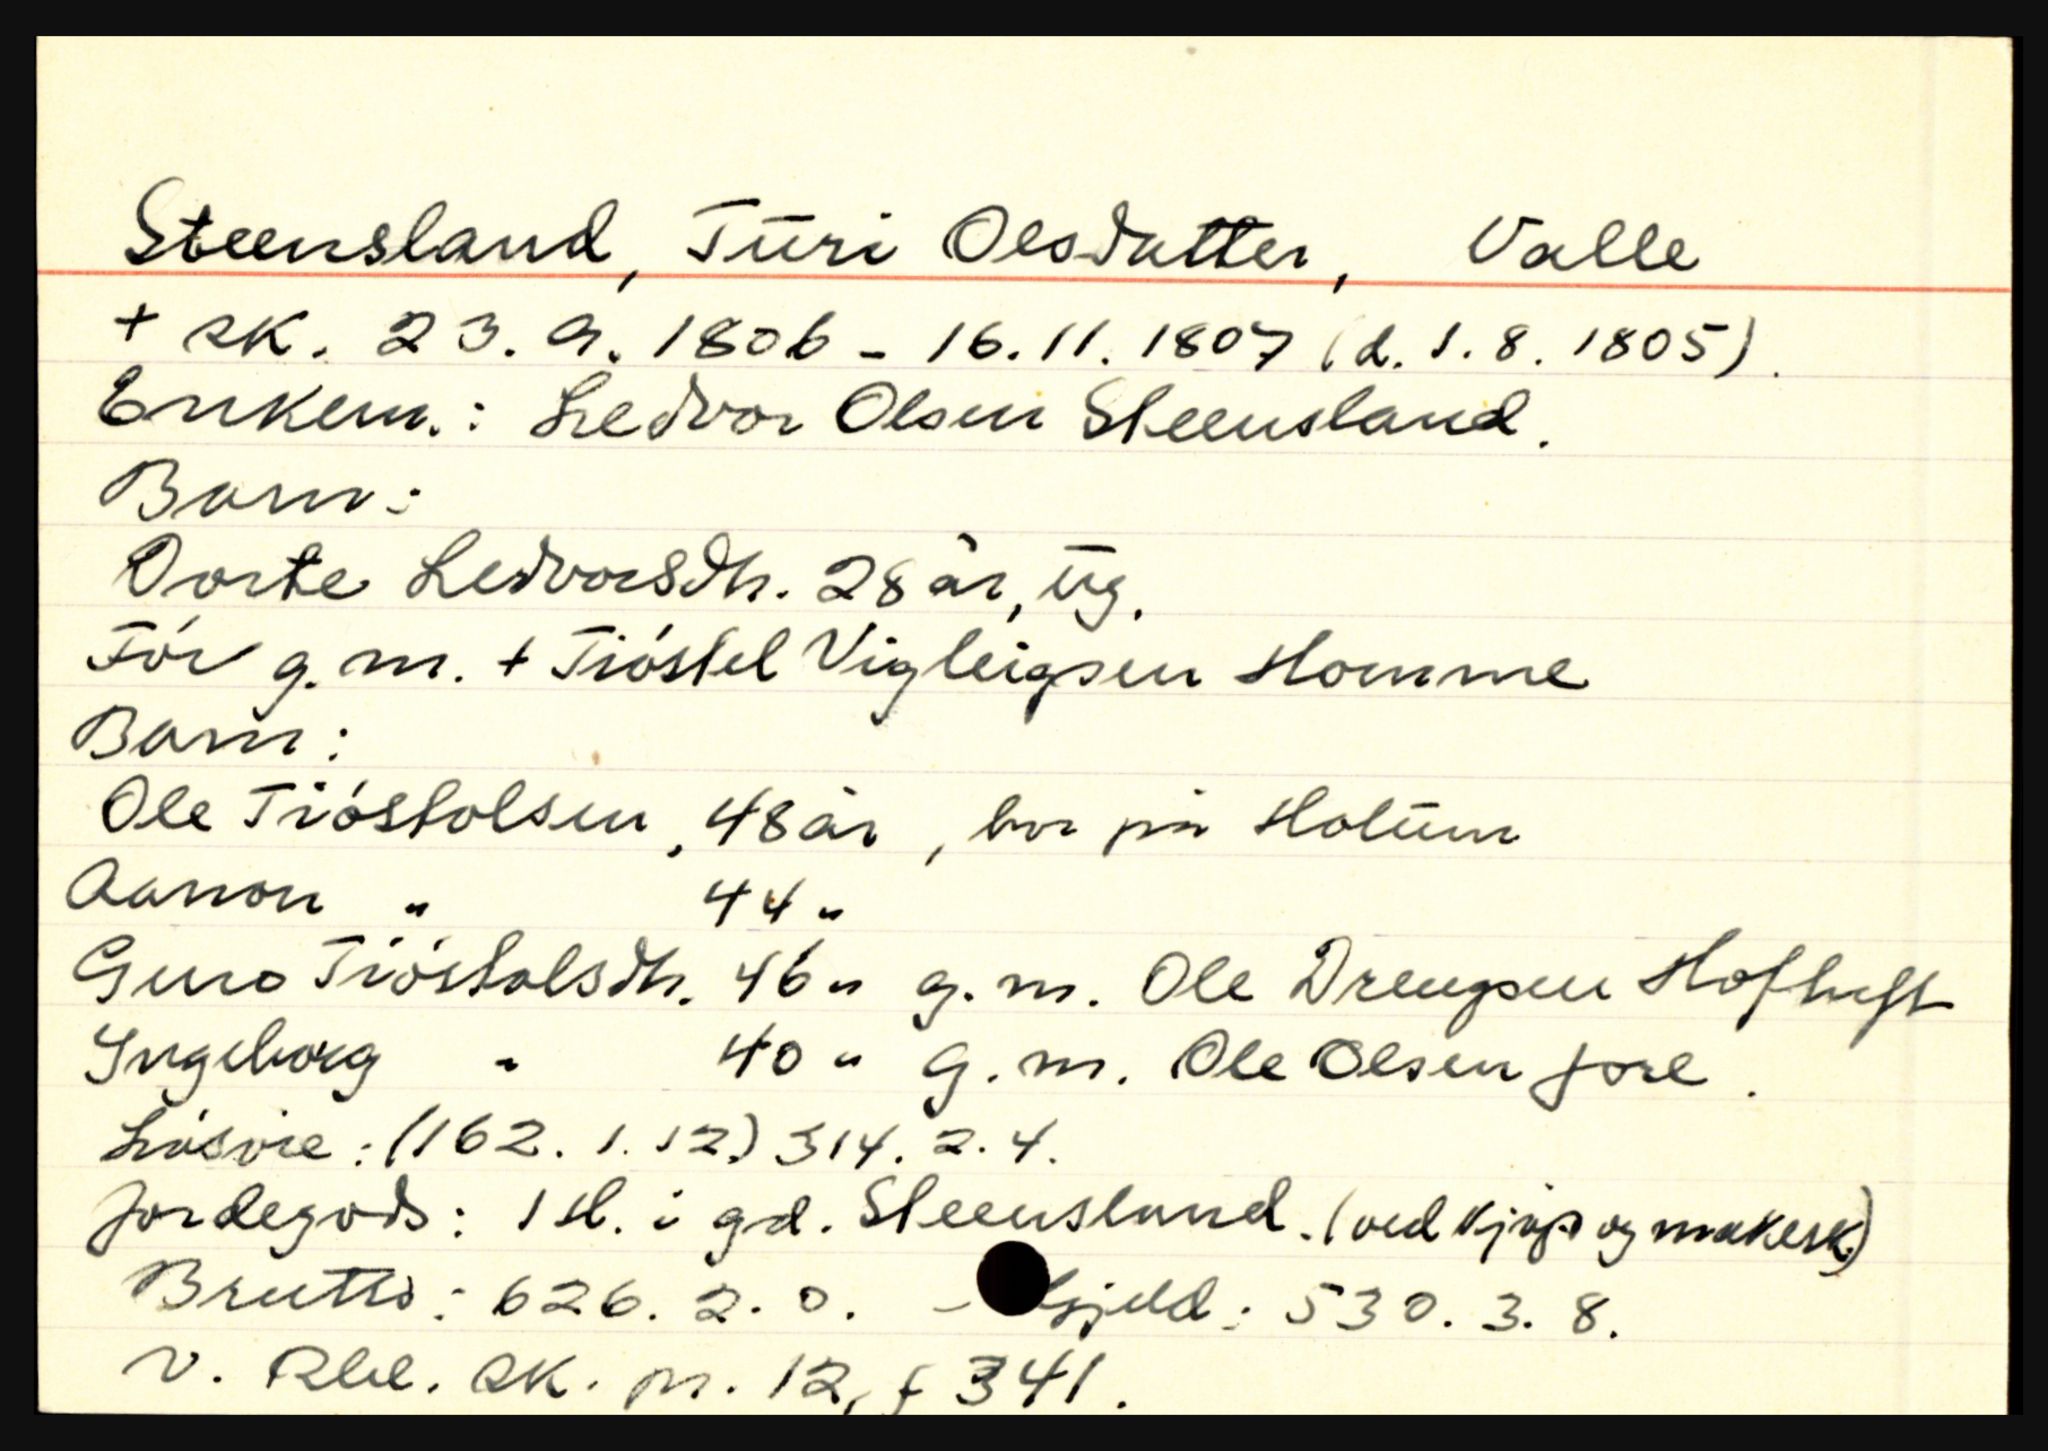 Steensland, Turi Olsdatter, Valle
+ sk. 23.9.1806 - 16.11.1807 (d. 1.8.1805).
Enkem.: Ledvor Olsen Steensland.
Barn:
Dorte Ledvorsdtr. 28 år, ug.
Før g.m. + Tiøstel Vigleigsen Homme
Barn:
Ole Tiøstolsen, 48 år, bor på Hotum
Aanon " 44 "
Guro Tiøstolsdtr. 46 " g.m. Ole Drengsen Hofluft
Ingeborg " 40 " g.m. Ole Olsen Jore.
Løsøre: (162.1.12) 314.2.4.
Jordegods: 1 H. i gd. Steensland. (ved kjøp og makesk.)
Brutto: 626.2.0. - Gjeld: 530.3.8.
V. Rbl. sk. pr. 12, f 341.